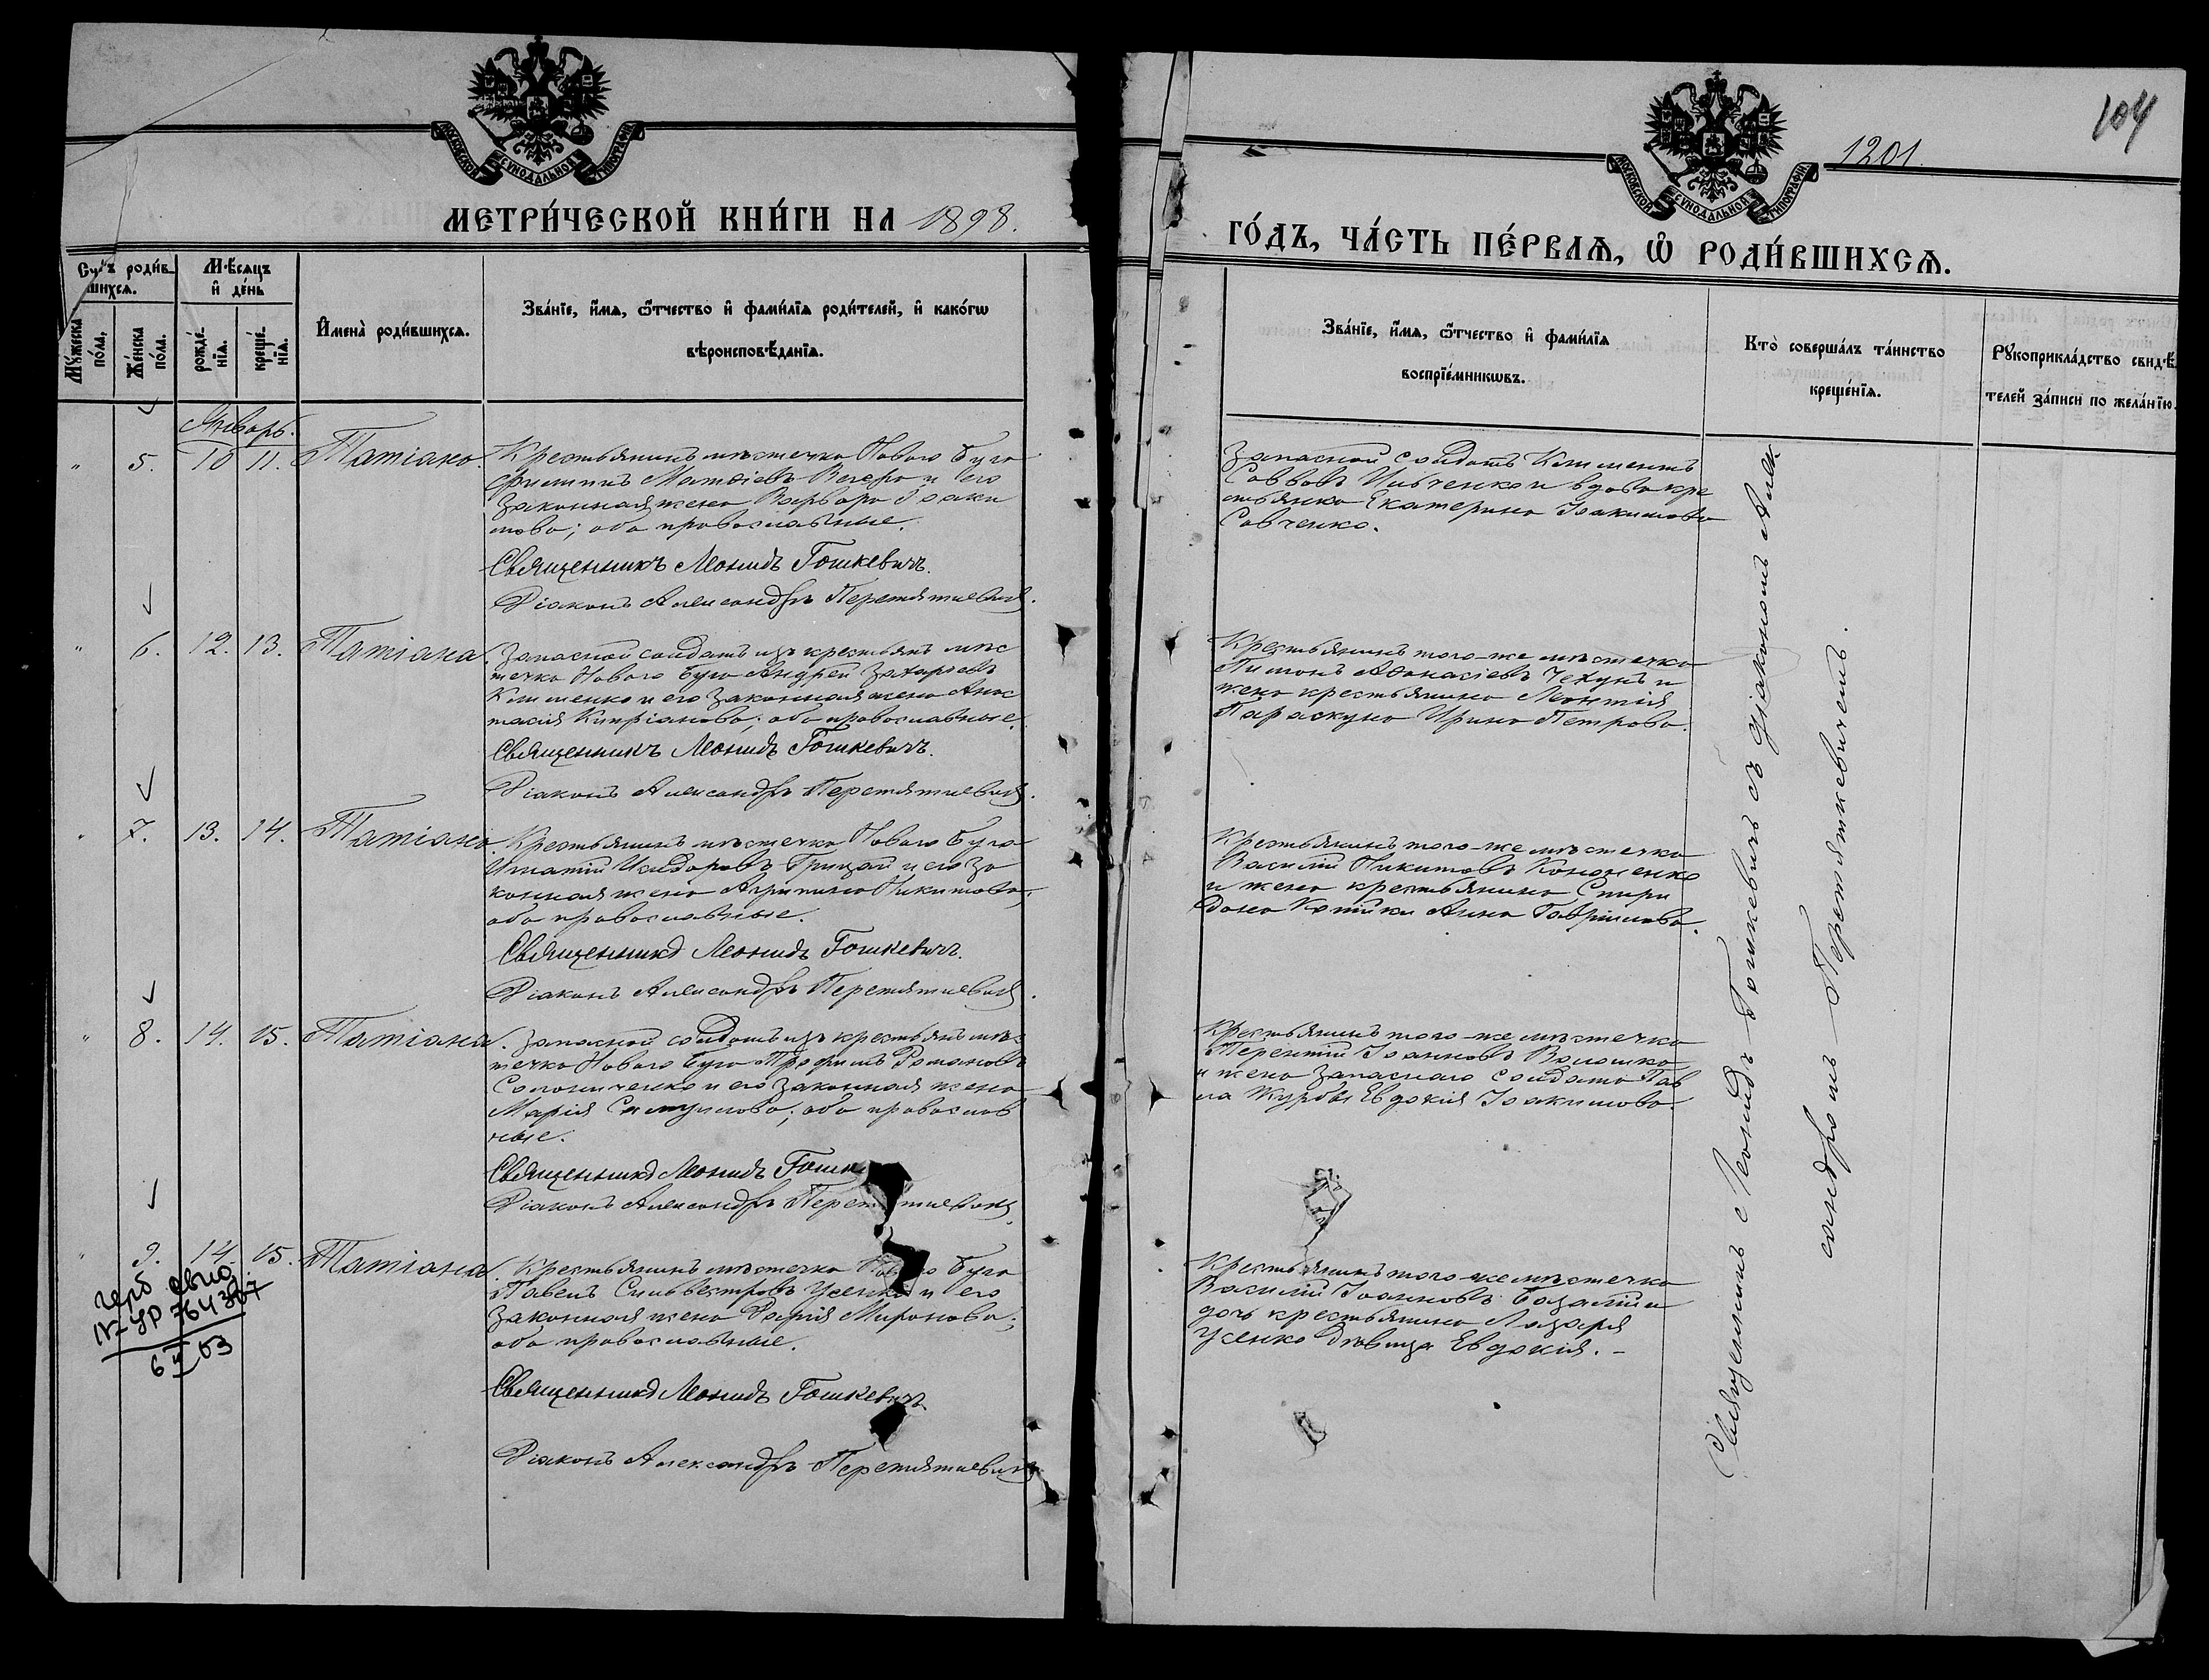 104
1201.
МОСКОВСКОЙ СѴНОДАЛЬНОЙ ТИПОГРАФІИ
МОСКОВСКОЙ СѴНОДАЛЬНОЙ ТИПОГРАФІИ
МЕТРИ́ЧЕСКОЙ КНИ́ГИ НА 1898.
ГО́ДЪ, ЧА́СТЬ ПЕ́РВАѦ, Ѽ РОДИ́ВШИХСѦ.
родив-
шихсѧ.
Мѣсѧцъ
и де́нь
Мꙋжеска по́ла,
Же́нска по́ла.
рожде́нїѧ.
креще́нїѧ.
Имена̀ роди́вшихсѧ.
Зва́нїе, и́мѧ, ѻ҆́тчество и фами́лїѧ роди́телей, и како́гѡ
вѣроисповѣ́данїѧ.
Зва́нїе, и́мѧ, ѻ҆́тчество и фами́лїѧ
воспрїе́мникѡвъ.
Кто̀ соверша́лъ та́инство
креще́нїѧ.
Рꙋкоприкла́дство свидѣ́-
телей за́писи по жела́нїю.
Январь.
" 5. 10 11. Татіана.
Крестьянинъ мѣстечка Новаго Буга
Филиппъ Матѳіевъ и его
законная жена Варвара Іоаки
мова; оба православные.
Священникъ Леонидъ Гошкевичъ.
Діаконъ Александръ Перетяткевичъ.
Запасной солдатъ Климентъ
Саввовъ Ильченко и вдова кре
стьянка Екатерина Іоакимова
Савченко.
" 6. 12. 13. Татіана.
Запасной солдатъ изъ крестьянъ мѣс
течка Новаго Буга Андрей Захаріевъ
Клименко и его законная жена Анас
тасія Кипріанова; оба православные.
Священникъ Леонидъ Гошкевичъ.
Діаконъ Александръ Перетяткевичъ.
Крестьянинъ того-же мѣстечка
Пименъ Аѳанасіевъ Чехунъ и
жена крестьянина Леонтія
Параскуна Ирина Петрова.
" 7. 13. 14. Татіана.
Крестьянинъ мѣстечка Новаго Буга
Игнатій Исидоровъ Грицай и его за
конная жена Агрипина Никитова;
оба православные.
Священникъ Леонидъ Гошкевичъ.
Діаконъ Александръ Перетяткевичъ.
Крестьянинъ того-же мѣстечка
Василій Никитовъ Кононенко
и жена крестьянина Спири
дона Анна Гавріилова.
" 8. 14. 15. Татіана.
Запасной солдатъ изъ крестьянъ мѣс
течка Новаго Буга Трофимъ Романовъ
Соломиченко и его законная жена
Марія; оба православ
ные.
Священникъ Леонидъ Гошк
Діаконъ Александръ Перет ткевичъ.
Крестьянинъ того-же мѣстечка
Терентій Іоанновъ Волошко
и жена запаснаго солдата Пав
ла Курбы Евдокія Іоакимова.
" 9. 14. 15. Татіана.
Крестьянинъ мѣстечка Новаго Буга
Павелъ Сильвестровъ Усенко и его
законная жена Дарія Миронова;
оба православные.
Священникъ Леонидъ Гошкевичъ
Діаконъ Александръ Перетяткевичъ
Крестьянинъ того-же мѣстечка
Василій Іоанновъ и
дочь крестьянина Лазаря
Усенко дѣвица Евдокія. –
Священникъ Леонидъ Гошкевичъ съ діакономъ Алек
сандромъ Перетяткевичемъ.